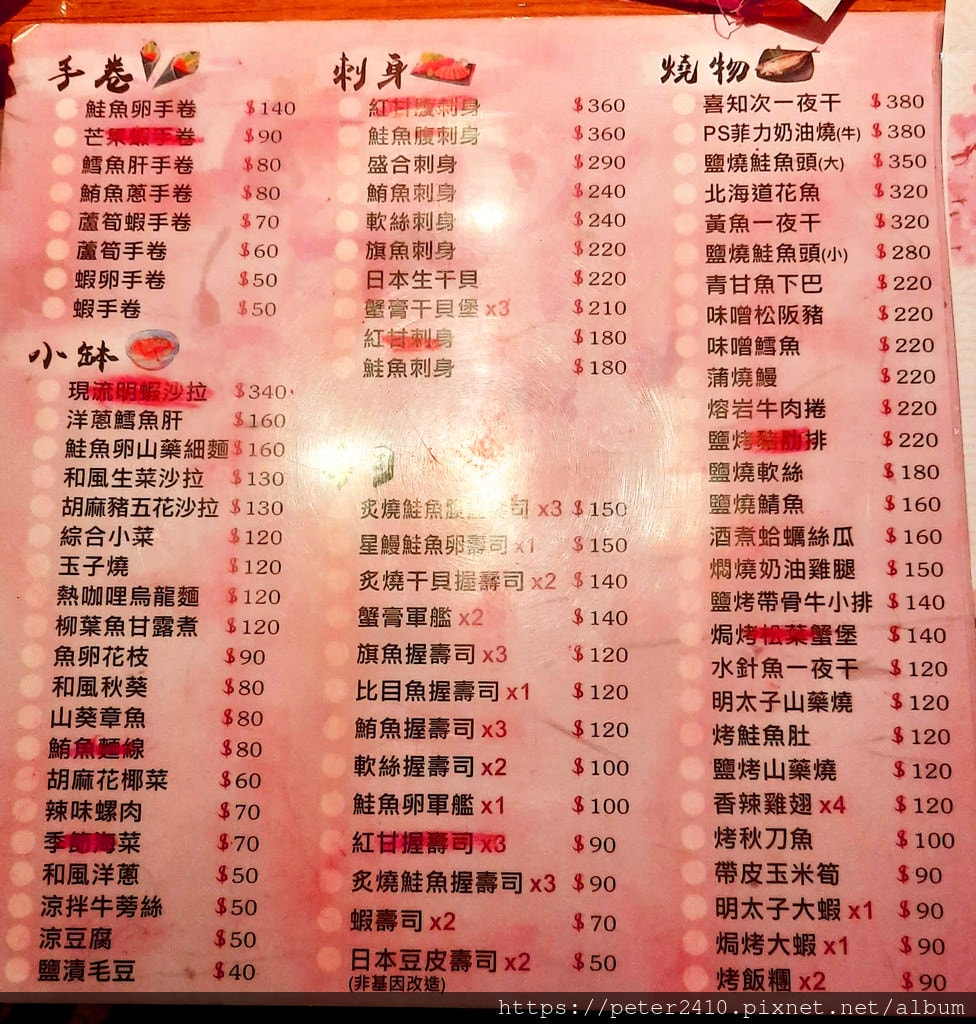 手卷
鮭魚卵手卷 $140
芒果蝦手卷 $90
鱈魚肝手卷 $80
鮪魚蔥手卷 $80
蘆筍蝦手卷 $70
蘆筍手卷 $60
蝦卵手卷 $50
蝦手卷 $50
小缽
現流明蝦沙拉 $340
洋蔥鱈魚肝 $160
鮭魚卵山藥細麵 $160
和風生菜沙拉 $130
胡麻豬五花沙拉 $130
綜合小菜 $120
玉子燒 $120
熱咖哩烏龍麵 $120
柳葉魚甘露煮 $120
魚卵花枝 $90
和風秋葵 $80
山葵章魚 $80
鮪魚麵線 $80
胡麻花椰菜 $60
辣味螺肉 $70
季節海菜 $70
和風洋蔥 $50
涼拌牛蒡絲 $50
涼豆腐 $50
鹽漬毛豆 $40
刺身
紅甘腹刺身 $360
鮭魚腹刺身 $360
盛合刺身 $290
鮪魚刺身 $240
軟絲刺身 $240
旗魚刺身 $220
日本生干貝 $220
蟹膏干貝堡 x3 $210
紅甘刺身 $180
鮭魚刺身 $180
炙燒鮭魚腹握壽司 x3 $150
星鰻鮭魚卵壽司 x1 $150
炙燒干貝握壽司 x2 $140
蟹膏軍艦 x2 $140
旗魚握壽司 x3 $120
比目魚握壽司 x1 $120
鮪魚握壽司 x3 $120
軟絲握壽司 x2 $100
鮭魚卵軍艦 x1 $100
紅甘握壽司 x3 $90
炙燒鮭魚握壽司 x3 $90
蝦壽司 x2 $70
日本豆皮壽司 x2 $50
(非基因改造)
燒物
喜知次一夜干 $380
PS菲力奶油燒(牛) $380
鹽燒鮭魚頭(大) $350
北海道花魚 $320
黃魚一夜干 $320
鹽燒鮭魚頭(小) $280
青甘魚下巴 $220
味噌松阪豬 $220
味噌鱈魚 $220
蒲燒鰻 $220
熔岩牛肉捲 $220
鹽烤豬肋排 $220
鹽燒軟絲 $180
鹽燒鯖魚 $160
酒煮蛤蠣絲瓜 $160
燜燒奶油雞腿 $150
鹽烤帶骨牛小排 $140
焗烤松葉蟹堡 $140
水針魚一夜干 $120
明太子山藥燒 $120
烤鮭魚肚 $120
鹽烤山藥燒 $120
香辣雞翅 x4 $120
烤秋刀魚 $100
帶皮玉米筍 $90
明太子大蝦 x1 $90
焗烤大蝦 x1 $90
烤飯糰 x2 $90
https://peter2410.pixnet.net/album